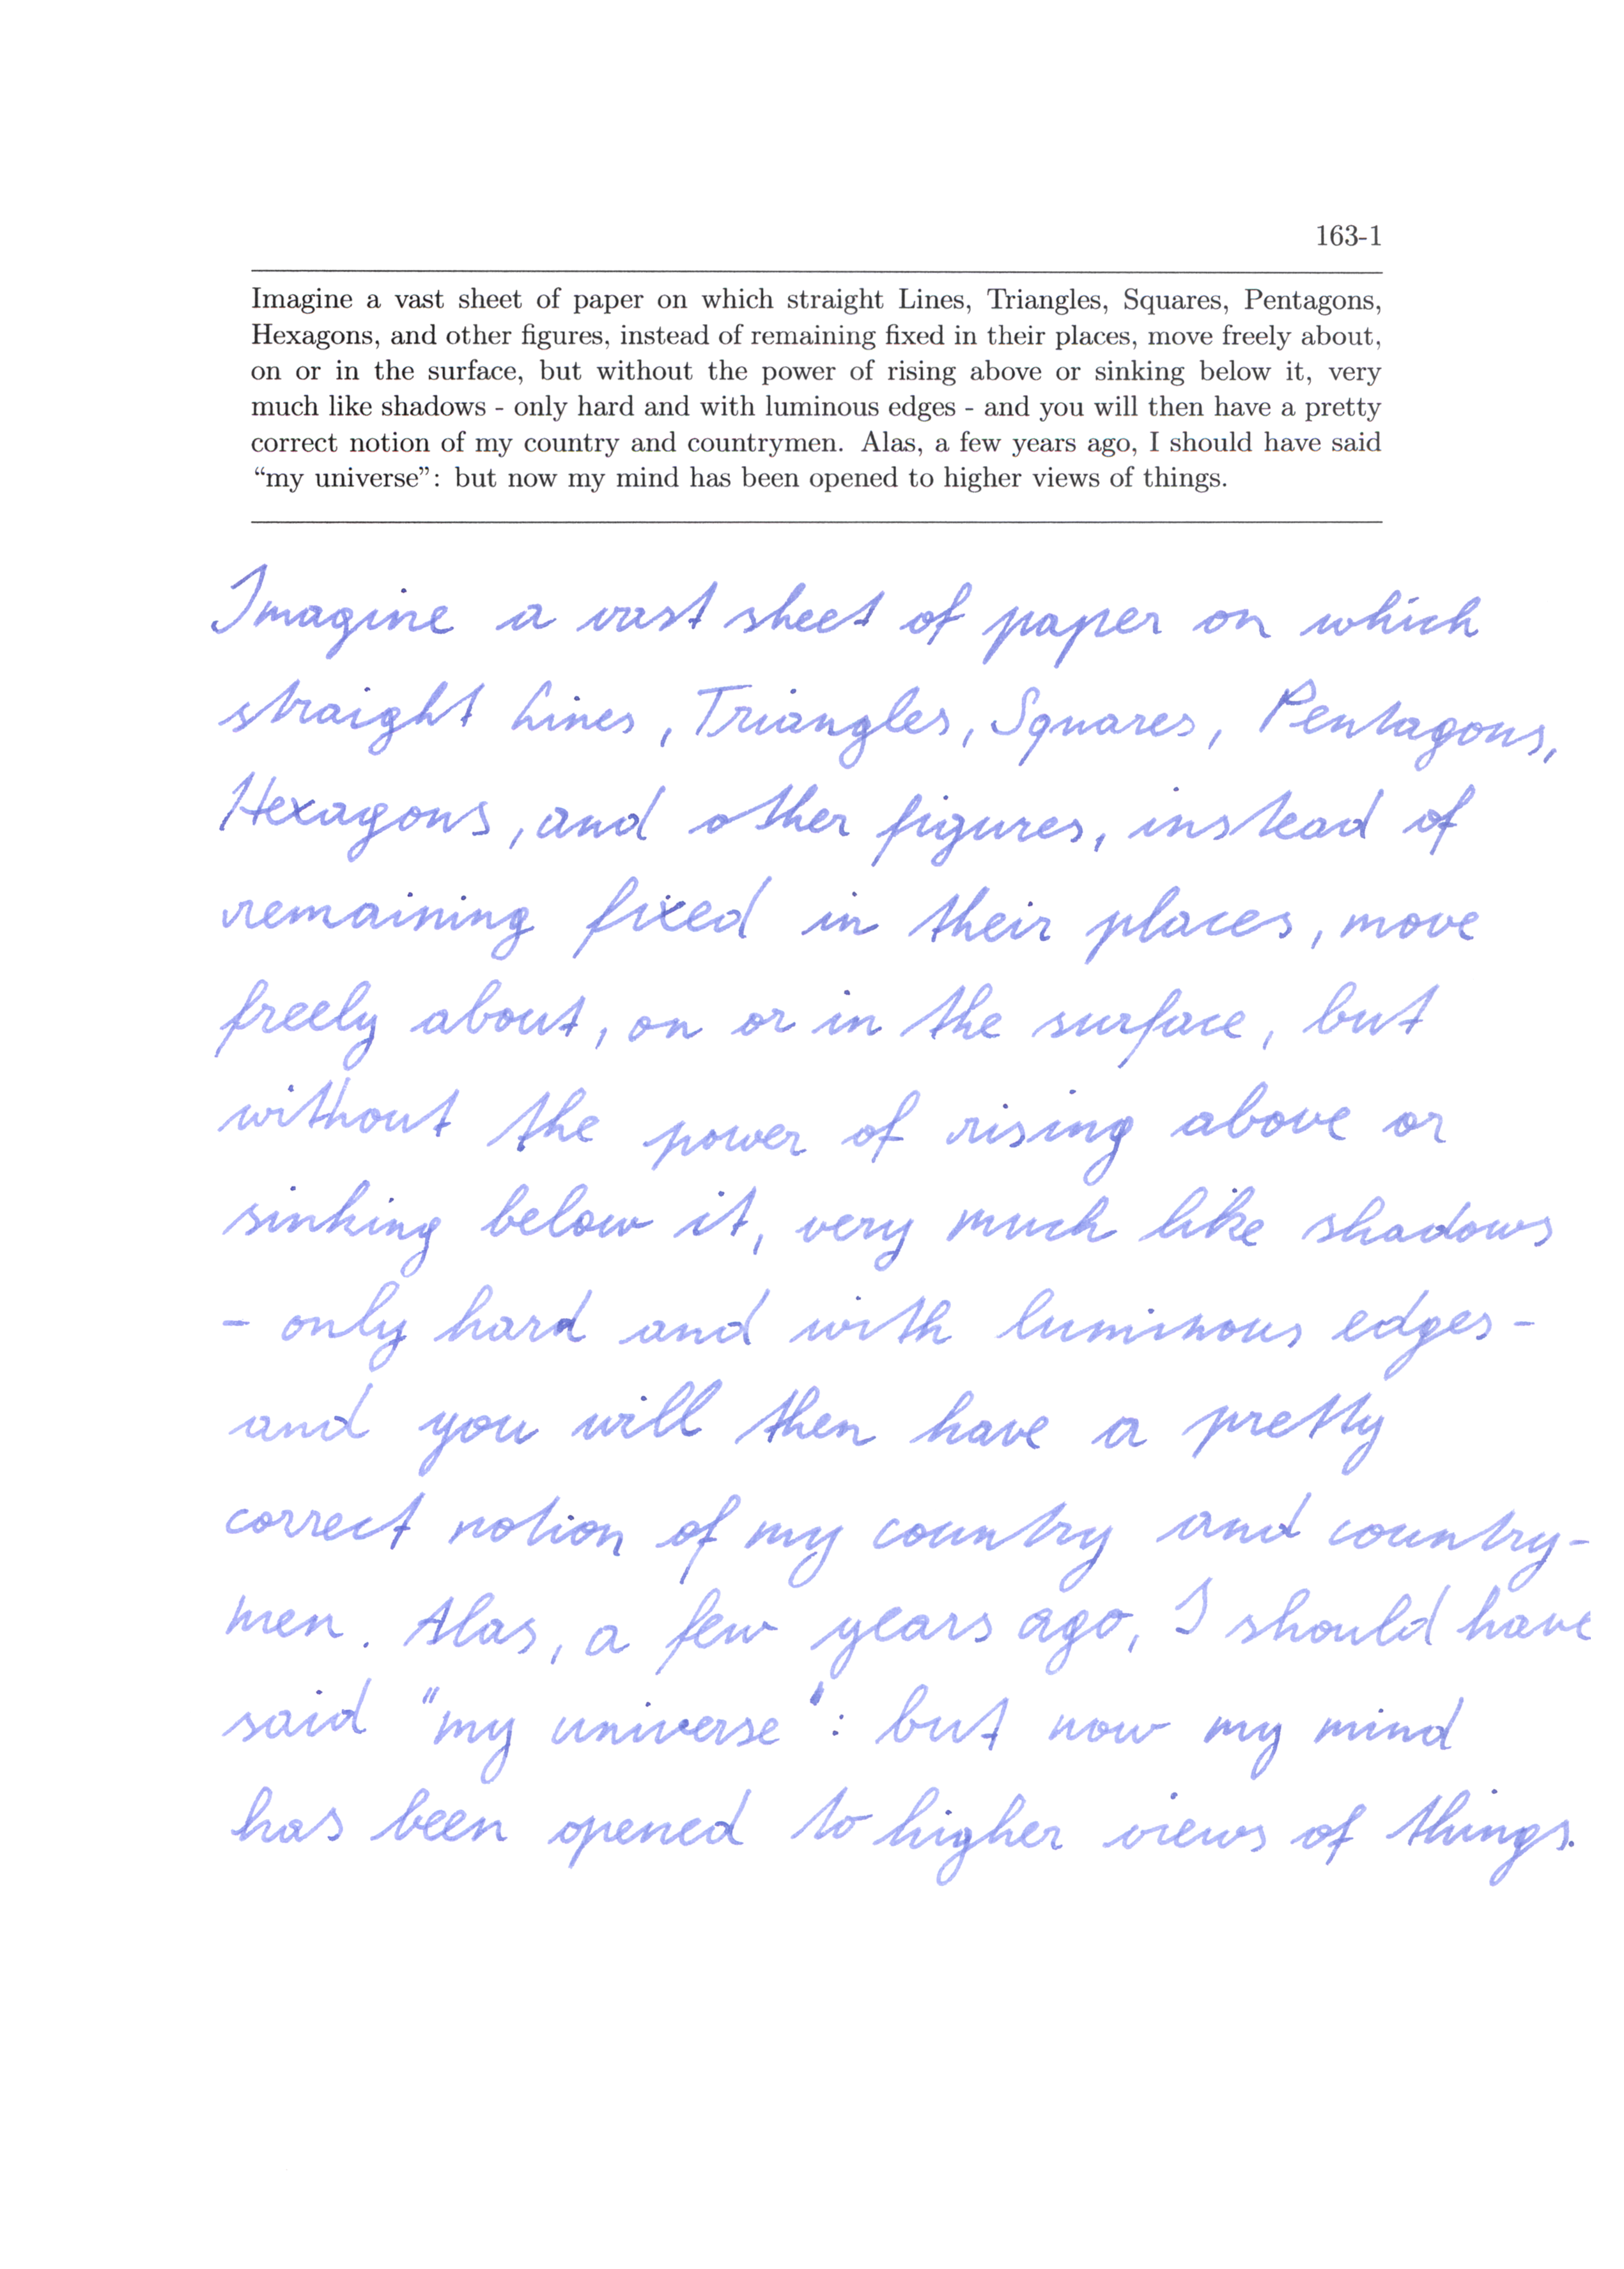 163-1
Imagine a vast sheet of paper on which straight Lines, Triangles, Squares, Pentagons,
Hexagons, and other figures, instead of remaining fixed in their places, move freely about,
on or in the surface, but without the power of rising above or sinking below it, very
much like shadows - only hard and with luminous edges - and you will then have a pretty
correct notion of my country and countrymen. Alas, a few years ago, I should have said
“my universe”: but now my mind has been opened to higher views of things.
Imagine a vast sheet of paper on which
straight Lines, Triangles, Squares, Pentagons,
Hexagons, and other figures, instead of
remaining fixed in their places, move
freely about, on or in the surface, but
without the power of rising above or
sinking below it, very much like shadows
- only hard and with luminous edges -
and you will then have a pretty
correct notion of my country and country-
men. Alas, a few years ago, I should have
said "my universe": but now my mind
has been opened to higher views of things.